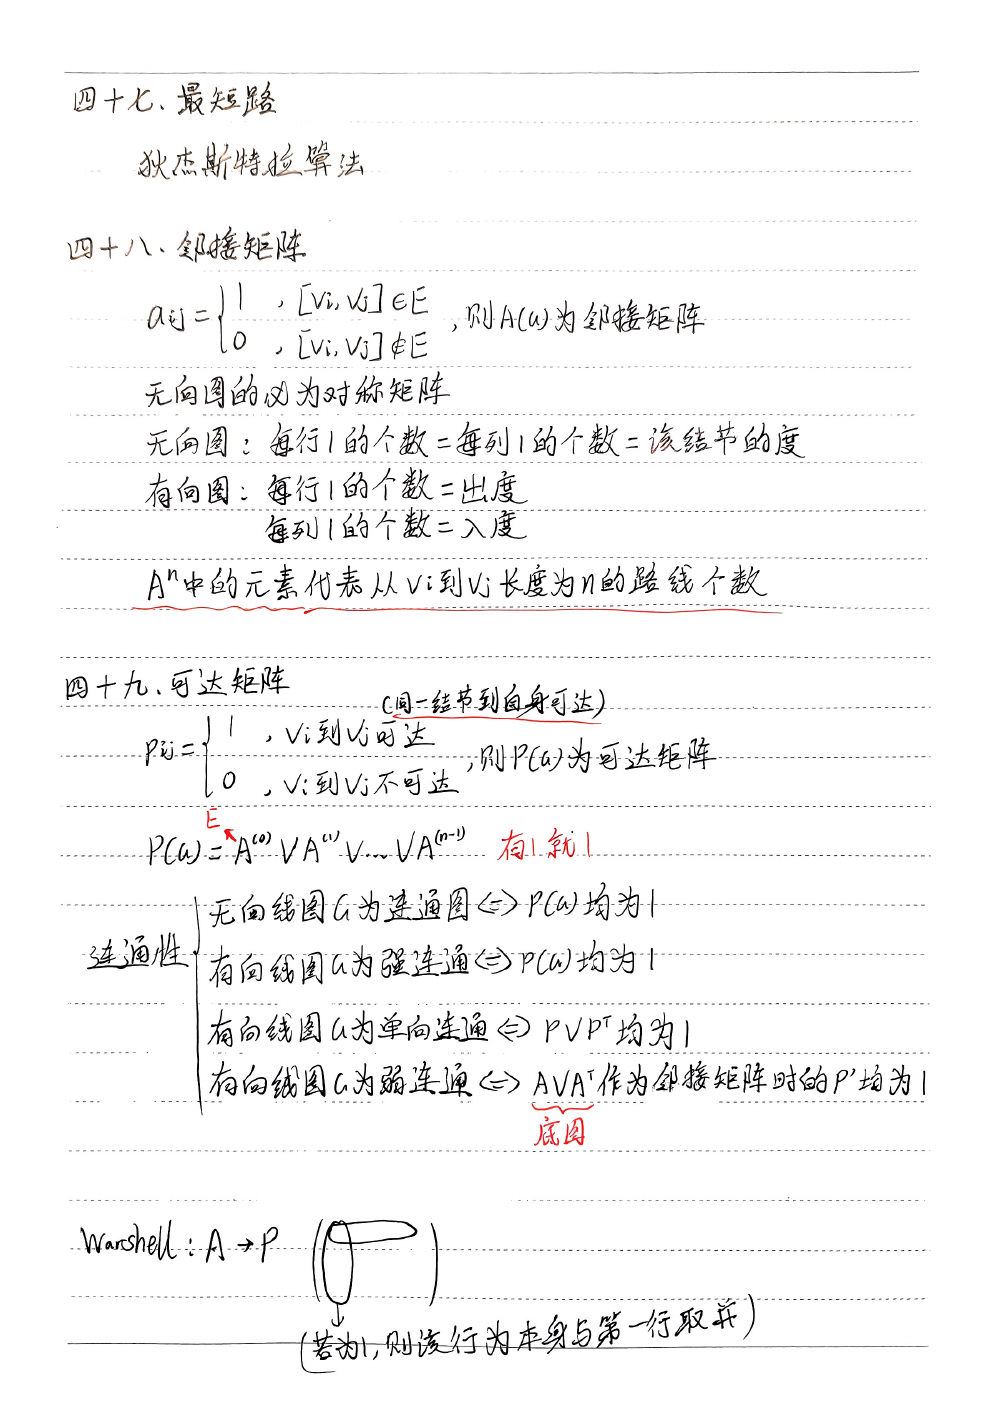 四十七、最短路
狄杰斯特拉算法
四十八、邻接矩阵
aij = { 1 , [Vi, Vj] ∈ E
0 , [Vi, Vj] ∉ E
, 则 A(G) 为邻接矩阵
无向图的必为对称矩阵
无向图: 每行1的个数=每列1的个数=该结节的度
有向图: 每行1的个数=出度
每列1的个数=入度
Aⁿ中的元素代表从Vi到Vj长度为n的路线个数
四十九、可达矩阵
(同一结节到自身可达)
Pij = { 1 , Vi到Vj可达
0 , Vi到Vj不可达
, 则P(G)为可达矩阵
E
P(G) = A⁽⁰⁾ ∨ A⁽¹⁾ ∨ … ∨ A⁽ⁿ⁻¹⁾ 有1就1
连通性
无向线图G为连通图 <=> P(G)均为1
有向线图G为强连通 <=> P(G)均为1
有向线图G为单向连通 <=> P∨Pᵀ均为1
有向线图G为弱连通 <=> A∨Aᵀ作为邻接矩阵时的P'均为1
底图
Warshell: A → P
(若为1, 则该行为本身与第一行取并)